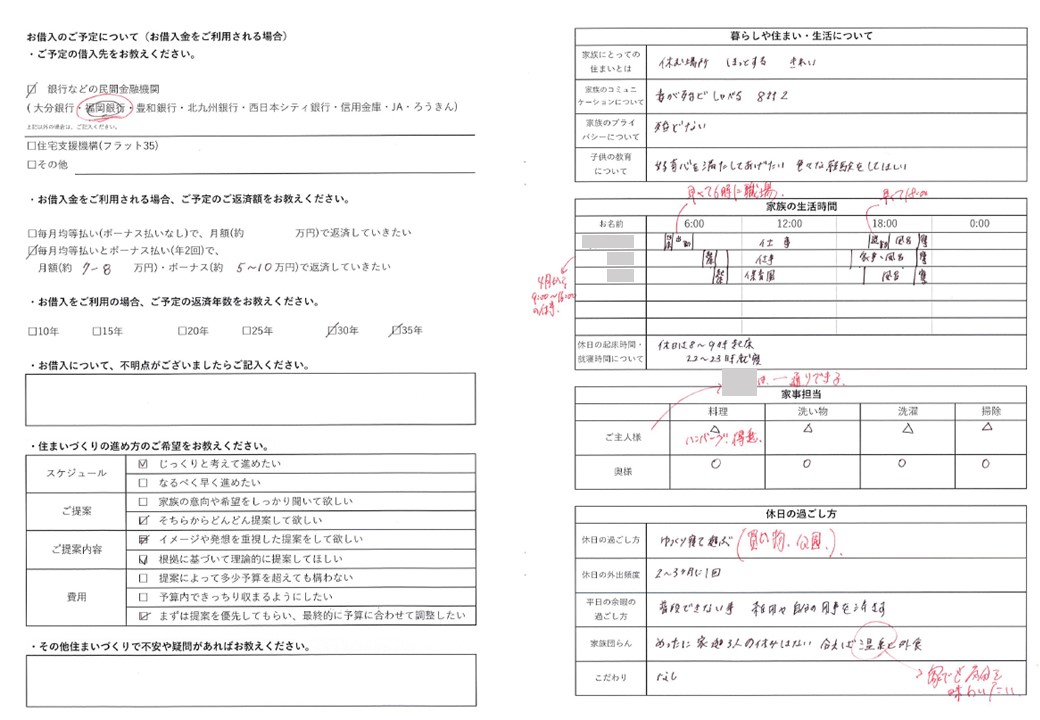 お借入のご予定について（お借入金をご利用される場合）
・ご予定の借入先をお教えください。
☑ 銀行などの民間金融機関
( 大分銀行・福岡銀行・豊和銀行・北九州銀行・西日本シティ銀行・信用金庫・JA・ろうきん)
上記以外の場合は、ご記入ください。
□住宅支援機構(フラット35)
□その他
・お借入金をご利用される場合、ご予定のご返済額をお教えください。
□毎月均等払い(ボーナス払いなし)で、月額(約 万円)で返済していきたい
☑毎月均等払いとボーナス払い(年2回)で、
月額(約 7~8 万円)・ボーナス(約 5~10 万円)で返済していきたい
・お借入をご利用の場合、ご予定の返済年数をお教えください。
□10年 □15年 □20年 □25年 ☑30年 ☑35年
・お借入について、不明点がございましたらご記入ください。
・住まいづくりの進め方のご希望をお教えください。
スケジュール
☑ じっくりと考えて進めたい
□ なるべく早く進めたい
ご提案
□ 家族の意向や希望をしっかり聞いて欲しい
☑ そちらからどんどん提案して欲しい
ご提案内容
☑ イメージや発想を重視した提案をして欲しい
☑ 根拠に基づいて理論的に提案してほしい
費用
□ 提案によって多少予算を超えても構わない
□ 予算内できっちり収まるようにしたい
☑ まずは提案を優先してもらい、最終的に予算に合わせて調整したい
・その他住まいづくりで不安や疑問があればお教えください。
暮らしや住まい・生活について
家族にとっての
住まいとは
休む場所 ほっとする きれい
家族のコミュニ
ケーションについて
妻が殆どしゃべる 8対2
家族のプライ
バシーについて
殆どない
子供の教育
について
好奇心を満たしてあげたい 色々な経験をしてほしい
早くて6時に職場。
早くて18:00
家族の生活時間
お名前 6:00 12:00 18:00 0:00
出勤 仕事 退勤 風呂 寝
仕事 家事・風呂 寝
保育園 風呂 寝
4月から
9:00~16:00
の仕事。
休日の起床時間・
就寝時間について
休日は8~9時起床
22~23時就寝
は、一通りできる。
家事担当
料理 洗い物 洗濯 掃除
ご主人様 △ △ △ △
ハンバーグ、得意。
奥様 ○ ○ ○ ○
休日の過ごし方
休日の過ごし方
ゆっくり寝て遊ぶ (買い物、公園。)
休日の外出頻度
2~3ヶ月に1回
平日の余暇の
過ごし方
普段できない事 自分の用事をすます
家族団らん
めったに家族3人の休みはない 合えば温泉と外食
家でも気分を
味わいたい。
こだわり
なし